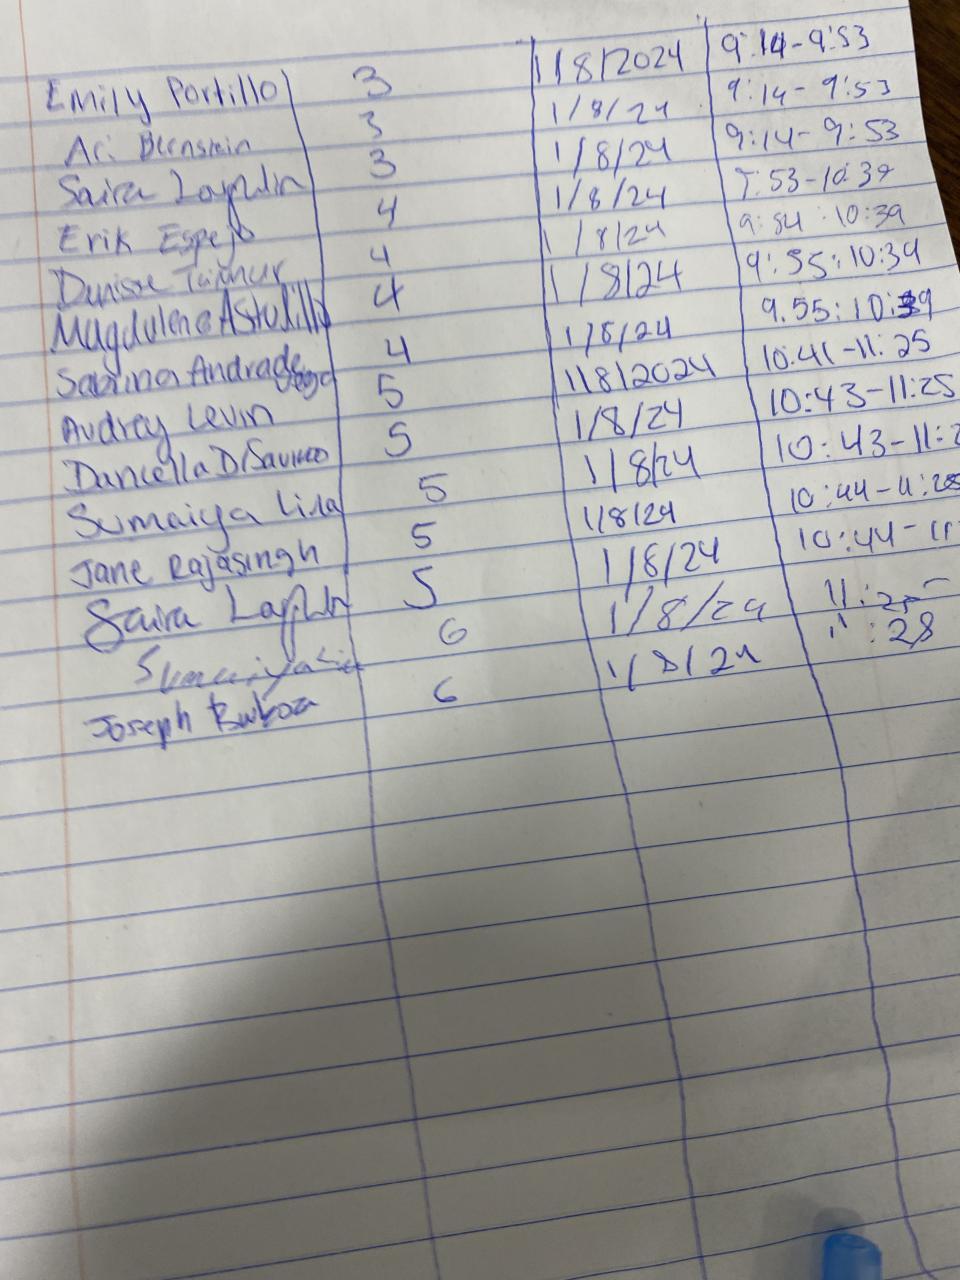 Emily Portillo 3 1/8/2024 9:14-9:53
Ari Bernstein 3 1/8/24 9:14-9:53
Saira 3 1/8/24 9:14-9:53
Erik Espejo 4 1/8/24 :53-10:39
4 1/8/24 9:54 : 10:39
Magdalena Astudillo 4 1/8/24 9:55 : 10:39
Sabrina Andrade 4 1/8/24 9.55: 10:39
Audrey Levin 5 1/8/2024 10:41-11:25
5 1/8/24 10:43-11:25
Sumaiya 5 1/8/24 10:43-11:2
Jane Rajasingh 5 1/8/24 10:44-11:28
Saira 5 1/8/24 10:44-11
6 1/8/24
Joseph 6 1/8/24 11:28